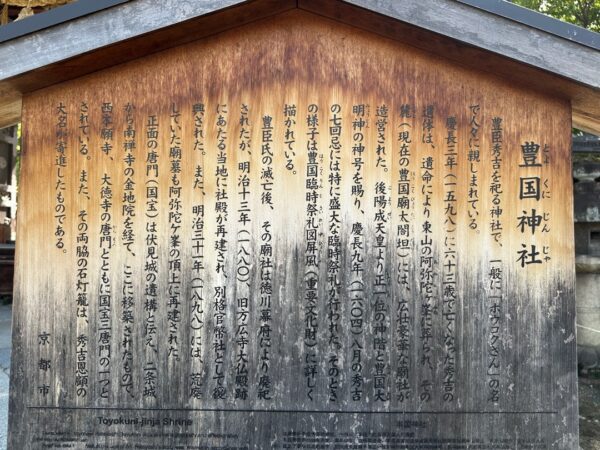 豊国神社
とよくにじんじゃ
豊臣秀吉を祀る神社で、一般に「ホウコクさん」の名
で人々に親しまれている。
慶長三年(一五九八)に六十三歳で亡くなった秀吉の
遺体は、遺命により東山の阿弥陀ヶ峯に葬られ、その
麓(現在の豊国廟太閤坦)には、広壮豪華な廟社が
造営された。後陽成天皇より正一位の神階と豊国大
明神の神号を賜り、慶長九年(一六〇四)八月の秀吉
の七回忌には特に盛大な臨時祭礼が行われた。そのとき
の様子は豊国臨時祭礼図屏風(重要文化財)に詳しく
描かれている。
豊臣氏の滅亡後、その廟社は徳川幕府により廃祀
されたが、明治十三年(一八八〇)、旧方広寺大仏殿跡
にあたる当地に社殿が再建され、別格官幣社として復
興された。また、明治三十一年(一八九八)には、荒廃
していた廟墓も阿弥陀ヶ峯の頂上に再建された。
正面の唐門(国宝)は伏見城の遺構と伝え、二条城
から南禅寺の金地院を経て、ここに移築されたもので、
西本願寺、大徳寺の唐門とともに国宝三唐門の一つと
されている。また、その両脇の石灯籠は、秀吉恩顧の
大名が寄進したものである。
京都市
Toyokuni-jinja Shrine